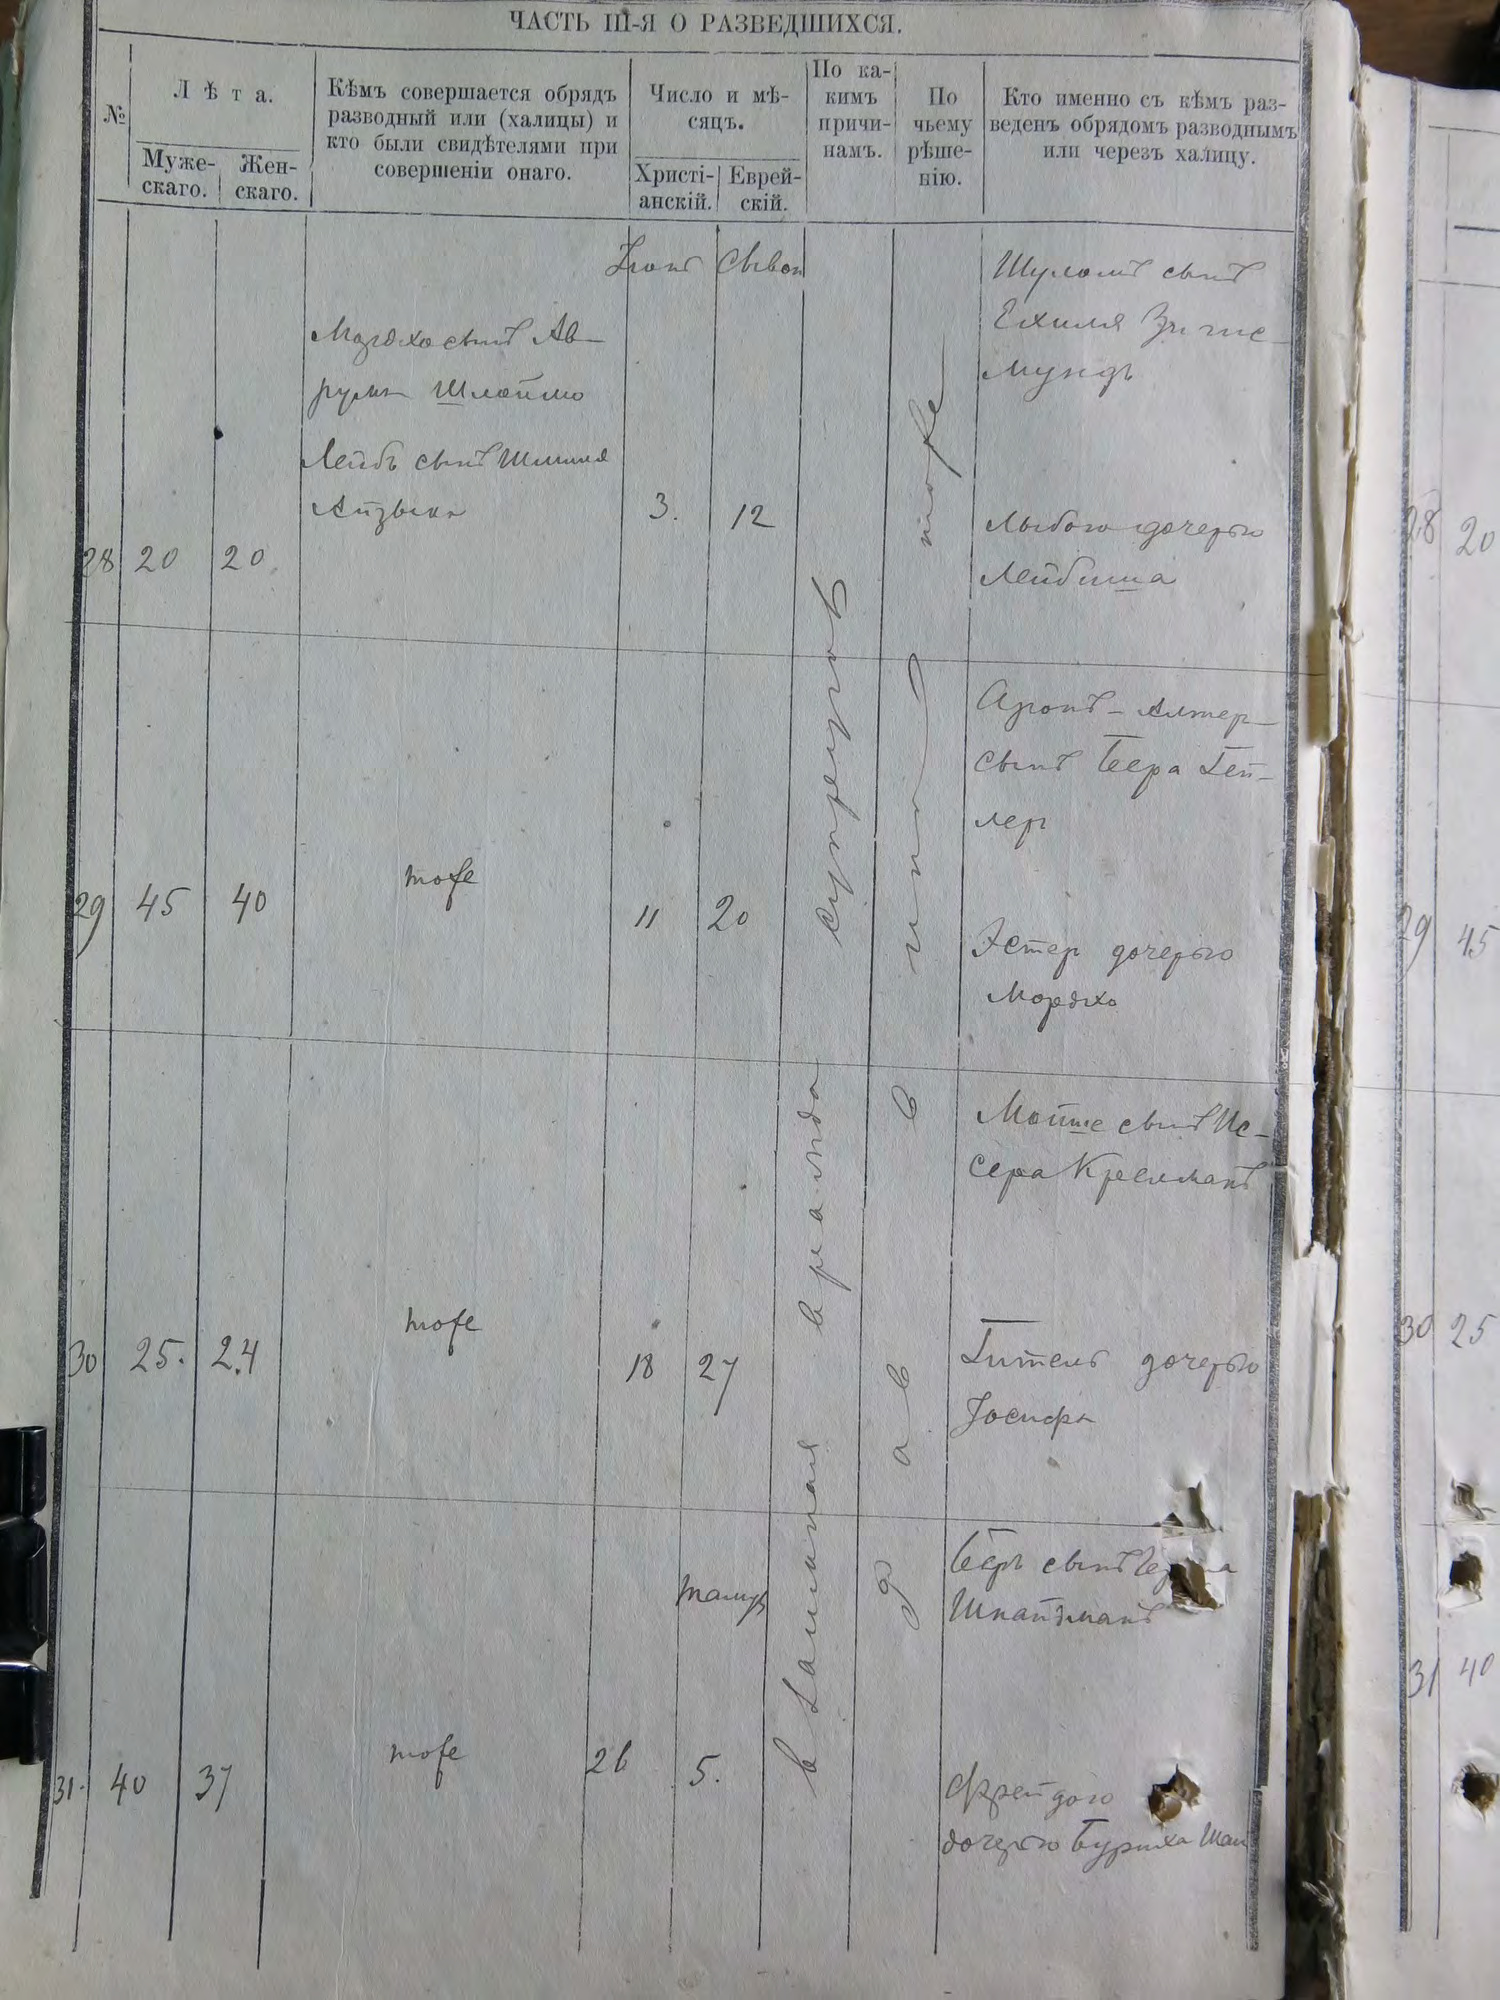 ЧАСТЬ III-Я О РАЗВЕДШИХСЯ.
№
Лѣта.
Муже-
скаго.
Жен-
скаго.
Кѣмъ совершается обрядъ
разводный или (халицы) и
кто были свидѣтелями при
совершеніи онаго.
Число и мѣ-
сяцъ.
Христі-
анскій.
Еврей-
скій.
По ка-
кимъ
причи-
намъ.
По
чьему
рѣше-
нію.
Кто именно съ кѣмъ раз-
веденъ обрядомъ разводнымъ
или черезъ халицу.
28
20
20
Мордхо сынъ Ав-
рума Шлоймо
Лейбъ сынъ
Айзыка
Іюнь
Сиван
3.
12
Шуломъ сынъ
Ехиля Зигис-
мундъ
дочерью
Лейбиша
29
45
40
тоже
11
20
Аронъ-Алтер
сынъ Бера Гей-
лер
Эстер дочерью
Мордхо
30
25.
24
тоже
18
27
Мойше сынъ Ис-
сера Крелманъ
Гитель дочерью
Іосифа
31.
40
37
тоже
26
тамуз
5.
Беръ сынъ
Шнайдманъ
Фрейдою
дочерью Буриха
вражда супругов
тоже
28
20
29
45
30
25
31
40